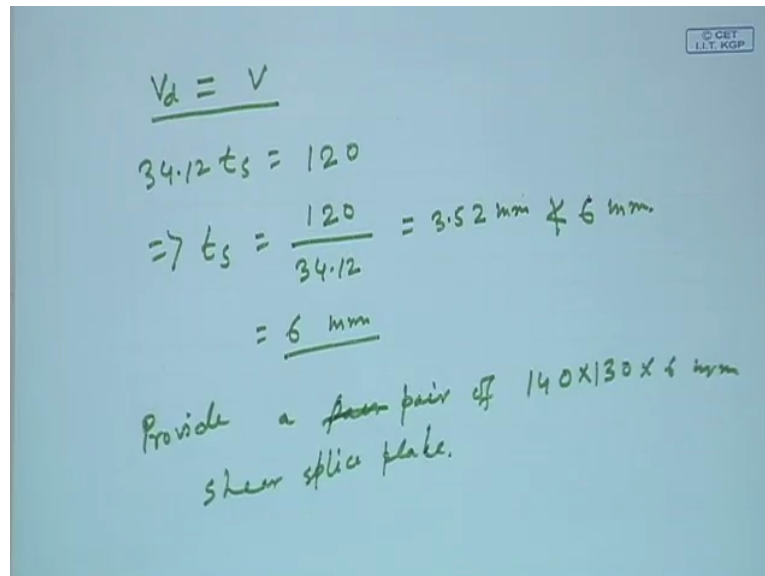 © CET
I.I.T. KGP
Vd = V
34.12 ts = 120
=> ts = 120 / 34.12 = 3.52 mm ≮ 6 mm.
= 6 mm
Provide a pair of 140x130x6 mm
shear splice plate.